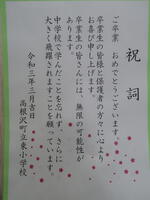 祝詞
ご卒業、おめでとうございます。
卒業生の皆様と保護者の方々に心より
お喜び申し上げます。
卒業生の皆さんには、無限の可能性が
あります。
中学校で学んだことを忘れず、さらに
大きく飛躍されますことを願っています。
令和三年三月吉日
高根沢町立東小学校